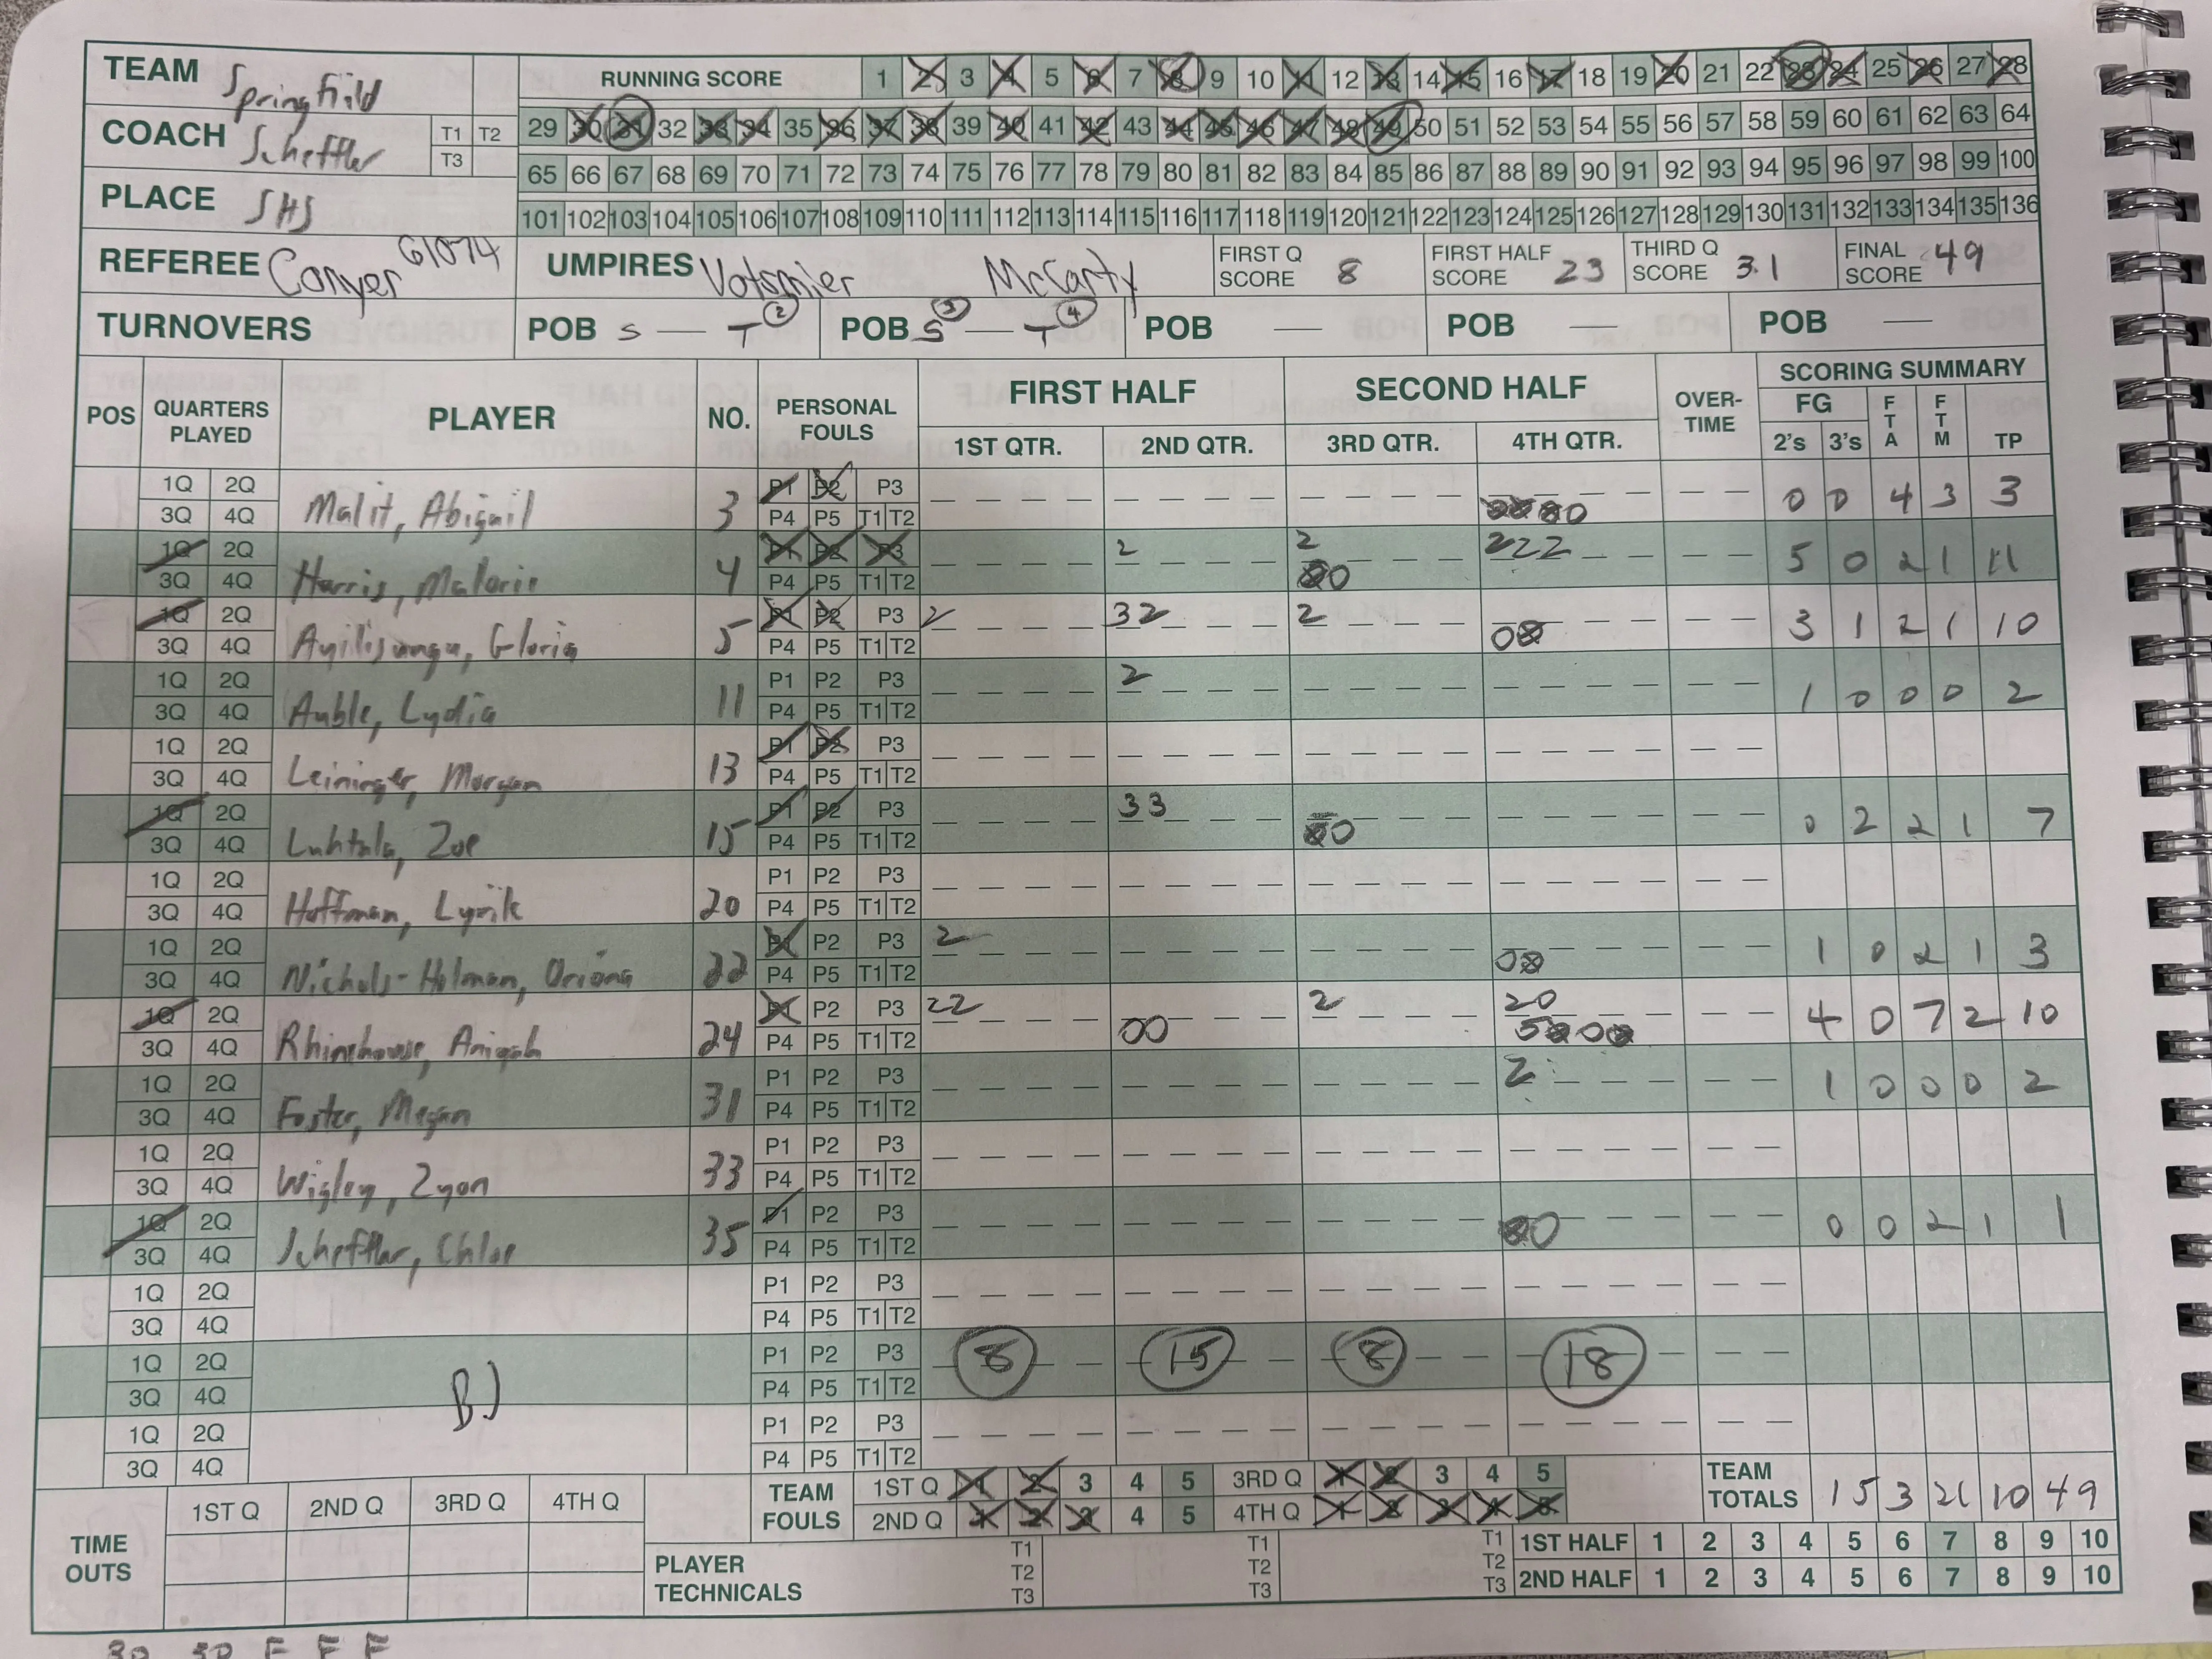 TEAM Springfild
RUNNING SCORE 1 2 3 4 5 6 7 8 9 10 11 12 13 14 15 16 17 18 19 20 21 22 23 24 25 26 27 28
COACH Scheffler T1 T2 T3
29 30 31 32 33 34 35 36 37 38 39 40 41 42 43 44 45 46 47 48 49 50 51 52 53 54 55 56 57 58 59 60 61 62 63 64
65 66 67 68 69 70 71 72 73 74 75 76 77 78 79 80 81 82 83 84 85 86 87 88 89 90 91 92 93 94 95 96 97 98 99 100
PLACE SHS
101 102 103 104 105 106 107 108 109 110 111 112 113 114 115 116 117 118 119 120 121 122 123 124 125 126 127 128 129 130 131 132 133 134 135 136
REFEREE Conyer 61074 UMPIRES McCarty FIRST Q SCORE 8 FIRST HALF SCORE 23 THIRD Q SCORE 31 FINAL SCORE 49
TURNOVERS POB S — T 2 POB S 3 — T 4 POB — POB — POB —
POS QUARTERS PLAYED PLAYER NO. PERSONAL FOULS FIRST HALF SECOND HALF OVER-TIME SCORING SUMMARY
1ST QTR. 2ND QTR. 3RD QTR. 4TH QTR. FG 2's 3's FTA FTM TP
1Q 2Q 3Q 4Q Malit, Abigail 3 P1 P2 P3 P4 P5 T1 T2 0000 0 0 4 3 3
1Q 2Q 3Q 4Q Harris, Malorie 4 P1 P2 P3 P4 P5 T1 T2 2 2 00 222 5 0 2 1 11
1Q 2Q 3Q 4Q Gloria 5 P1 P2 P3 P4 P5 T1 T2 2 32 2 00 3 1 2 1 10
1Q 2Q 3Q 4Q Auble, Lydia 11 P1 P2 P3 P4 P5 T1 T2 2 1 0 0 0 2
1Q 2Q 3Q 4Q Leininger, Morgan 13 P1 P2 P3 P4 P5 T1 T2
1Q 2Q 3Q 4Q Luhtala, Zoe 15 P1 P2 P3 P4 P5 T1 T2 33 00 0 2 2 1 7
1Q 2Q 3Q 4Q Hoffman, Lyrik 20 P1 P2 P3 P4 P5 T1 T2
1Q 2Q 3Q 4Q Nichols-Holman, Oriona 22 P1 P2 P3 P4 P5 T1 T2 2 00 1 0 2 1 3
1Q 2Q 3Q 4Q Rhinehouse, Aniyah 24 P1 P2 P3 P4 P5 T1 T2 22 00 2 20 4 0 7 2 10
1Q 2Q 3Q 4Q Foster, Megan 31 P1 P2 P3 P4 P5 T1 T2 2 1 0 0 0 2
1Q 2Q 3Q 4Q Wigley, Zyon 33 P1 P2 P3 P4 P5 T1 T2
1Q 2Q 3Q 4Q Scheffler, Chloe 35 P1 P2 P3 P4 P5 T1 T2 00 0 0 2 1 1
1Q 2Q 3Q 4Q P1 P2 P3 P4 P5 T1 T2
1Q 2Q 3Q 4Q P1 P2 P3 P4 P5 T1 T2 8 15 8 18
1Q 2Q 3Q 4Q P1 P2 P3 P4 P5 T1 T2
TEAM FOULS 1ST Q 1 2 3 4 5 3RD Q 1 2 3 4 5 TEAM TOTALS 15 3 21 10 49
2ND Q 1 2 3 4 5 4TH Q 1 2 3 4 5
TIME OUTS 1ST Q 2ND Q 3RD Q 4TH Q
PLAYER TECHNICALS T1 T2 T3 T1 T2 T3 T1 T2 T3
1ST HALF 1 2 3 4 5 6 7 8 9 10
2ND HALF 1 2 3 4 5 6 7 8 9 10